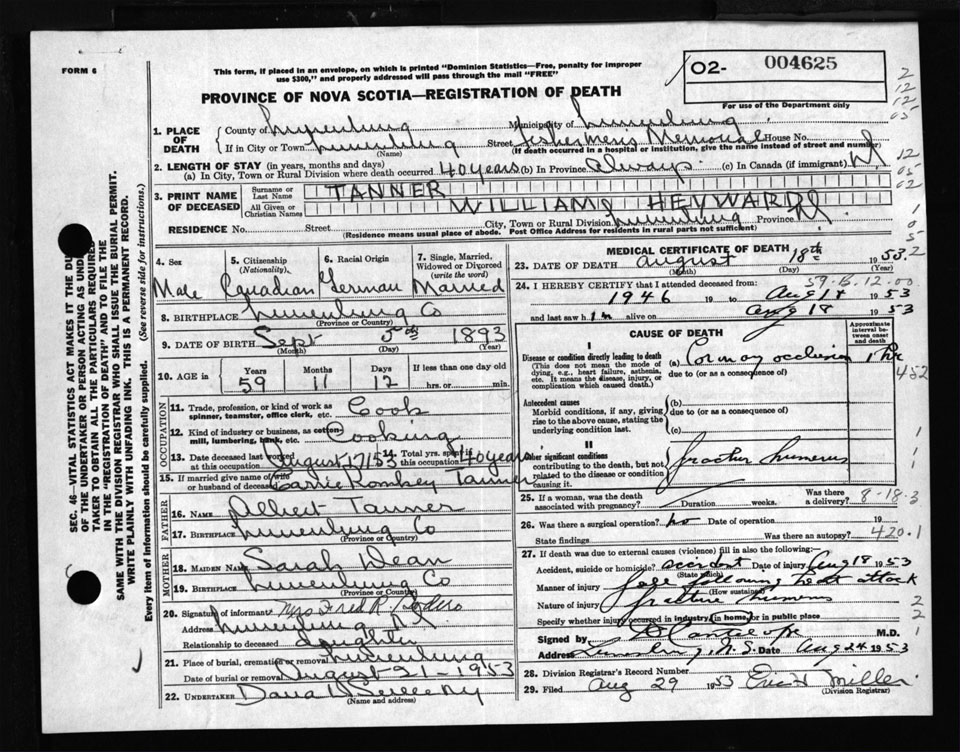 FORM 6
This form, if placed in an envelope, on which is printed "Dominion Statistics—Free, penalty for improper
use $300," and properly addressed will pass through the mail "FREE"
PROVINCE OF NOVA SCOTIA—REGISTRATION OF DEATH
02- 004625
For use of the Department only
1. PLACE OF DEATH
County of Lunenburg Municipality of Lunenburg
If in City or Town Lunenburg Street Fishermen's Memorial House No.
(Name) (If death occurred in a hospital or institution, give the name instead of street and number)
2. LENGTH OF STAY (in years, months and days)
(a) In City, Town or Rural Division where death occurred 40 years (b) In Province Always (c) In Canada (if immigrant)
3. PRINT NAME OF DECEASED
Surname or Last Name TANNER
All Given or Christian Names WILLIAM HEYWARD
RESIDENCE No. Street City, Town or Rural Division Lunenburg Province
(Residence means usual place of abode. Post Office Address for residents in rural parts not sufficient)
4. Sex Male
5. Citizenship (Nationality) Canadian
6. Racial Origin German
7. Single, Married, Widowed or Divorced (write the word) Married
8. BIRTHPLACE Lunenburg Co
(Province or Country)
9. DATE OF BIRTH Sept 5th 1893
(Month) (Day) (Year)
10. AGE in Years 59 Months 11 Days 12 If less than one day old hrs. or min.
OCCUPATION
11. Trade, profession, or kind of work as spinner, teamster, office clerk, etc. Cook
12. Kind of industry or business, as cotton-mill, lumbering, bank, etc. Cooking
13. Date deceased last worked at this occupation August 27/53 14. Total yrs. spent in this occupation 40 years
15. If married give name of wife or husband of deceased Carrie Romkey Tanner
FATHER
16. NAME Albert Tanner
17. BIRTHPLACE Lunenburg Co
(Province or Country)
MOTHER
18. MAIDEN NAME Sarah Dean
19. BIRTHPLACE Lunenburg Co
(Province or Country)
20. Signature of informant Mrs Fred R
Address Lunenburg
Relationship to deceased daughter
21. Place of burial, cremation or removal Lunenburg
Date of burial or removal August 21-1953
22. UNDERTAKER Dana
(Name and address)
MEDICAL CERTIFICATE OF DEATH
23. DATE OF DEATH August 18th 1953
(Month) (Day)
24. I HEREBY CERTIFY that I attended deceased from:
1946 19 to Aug 18 1953
and last saw him alive on Aug 18 1953
CAUSE OF DEATH
Approximate interval between onset and death
I
Disease or condition directly leading to death
(This does not mean the mode of dying, e.g., heart failure, asthenia, etc. It means the disease, injury, or complication which caused death.)
(a) Coronary occlusion 1 hr
due to (or as a consequence of)
Antecedent causes
Morbid conditions, if any, giving rise to the above cause, stating the underlying condition last.
(b)
due to (or as a consequence of)
(c)
II
Other significant conditions
contributing to the death, but not related to the disease or condition causing it.
fracture humerus
25. If a woman, was the death associated with pregnancy? Duration weeks. Was there a delivery? 8-18.3
26. Was there a surgical operation? no Date of operation 19
State findings Was there an autopsy? 420.1
27. If death was due to external causes (violence) fill in also the following:
Accident, suicide or homicide? accident Date of injury Aug 18 1953
(State which)
Manner of injury fall following heart attack
(How sustained)
Nature of injury fracture humerus
Specify whether injury occurred in industry, in home, or in public place
Signed by M.D.
Address Lunenburg, N.S. Date Aug 24 1953
28. Division Registrar's Record Number
29. Filed Aug 29 1953 Miller
(Division Registrar)
SEC. 46—VITAL STATISTICS ACT MAKES IT THE DU
OF THE UNDERTAKER OR PERSON ACTING AS UND
TAKER TO OBTAIN ALL THE PARTICULARS REQUIRED
IN THE "REGISTRATION OF DEATH" AND TO FILE THE
SAME WITH THE DIVISION REGISTRAR WHO SHALL ISSUE THE BURIAL PERMIT.
WRITE PLAINLY WITH UNFADING INK. THIS IS A PERMANENT RECORD.
Every item of Information should be carefully supplied. (See reverse side for instructions.)